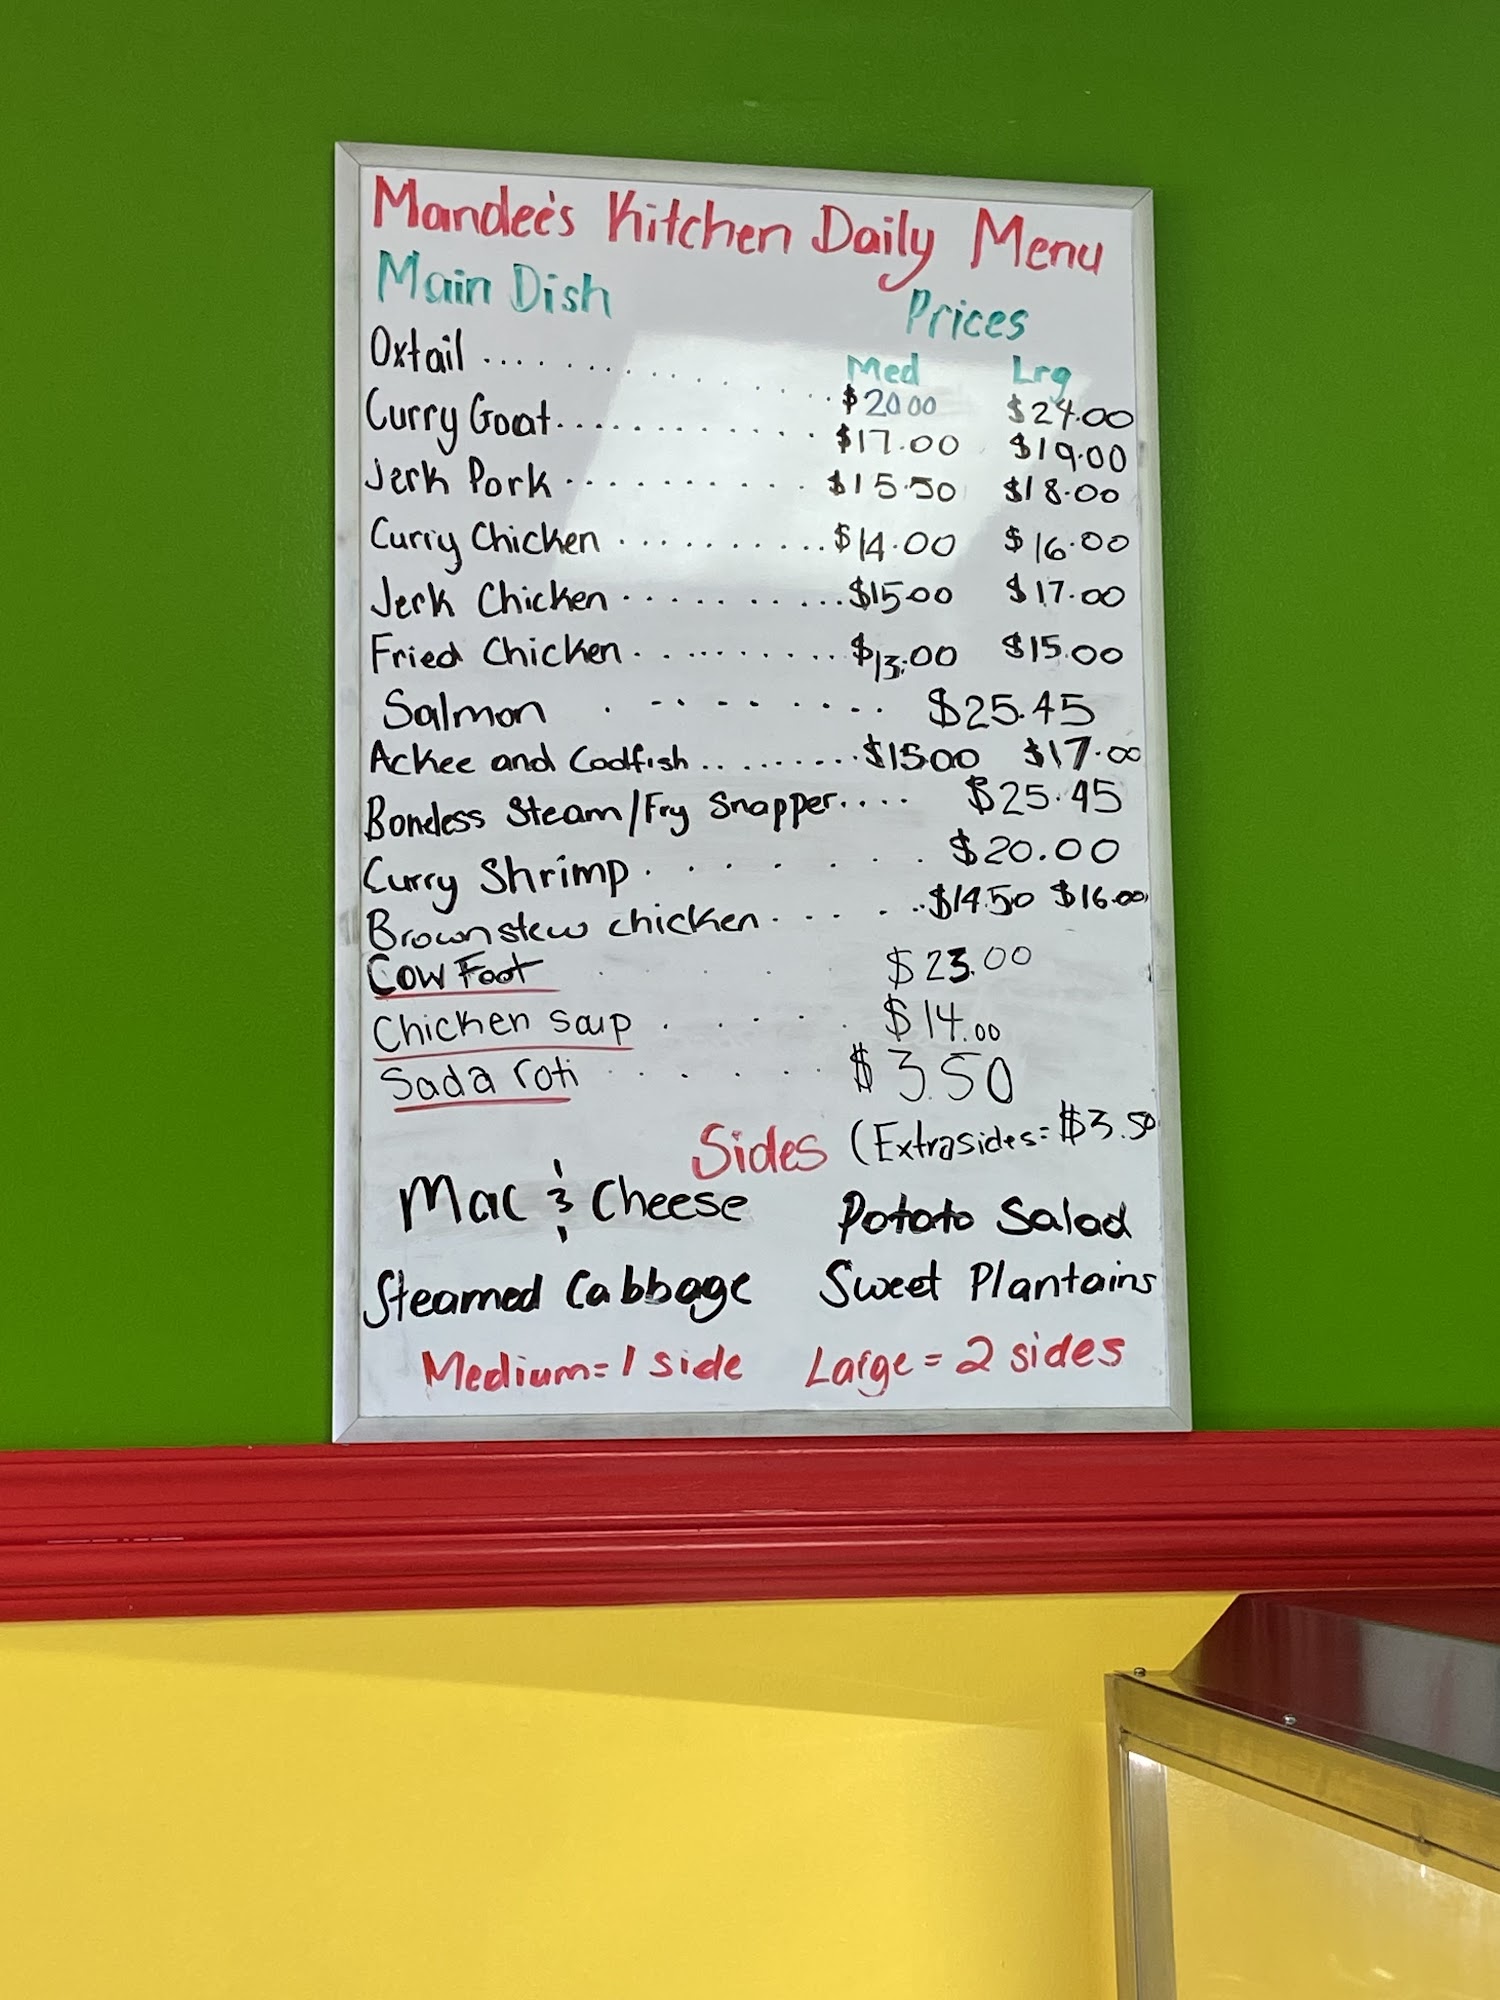 Mandee's Kitchen Daily Menu
Main Dish Prices
Med Lrg
Oxtail ............ $20 00 $24.00
Curry Goat............. $17.00 $19.00
Jerk Pork .......... $15.50 $18.00
Curry Chicken .......... $14.00 $16.00
Jerk Chicken .......... $15.00 $17.00
Fried Chicken .......... $13.00 $15.00
Salmon ......... $25.45
Ackee and Codfish ......... $15.00 $17.00
Boneless Steam/Fry Snapper.... $25.45
Curry Shrimp ....... $20.00
Brown stew chicken ...... $14.50 $16.00
Cow Foot .... $23.00
Chicken soup ..... $14.00
Sada roti ...... $3.50
Sides (Extrasides=$3.50
Mac & Cheese Potato Salad
Steamed Cabbage Sweet Plantains
Medium=1 side Large=2 sides